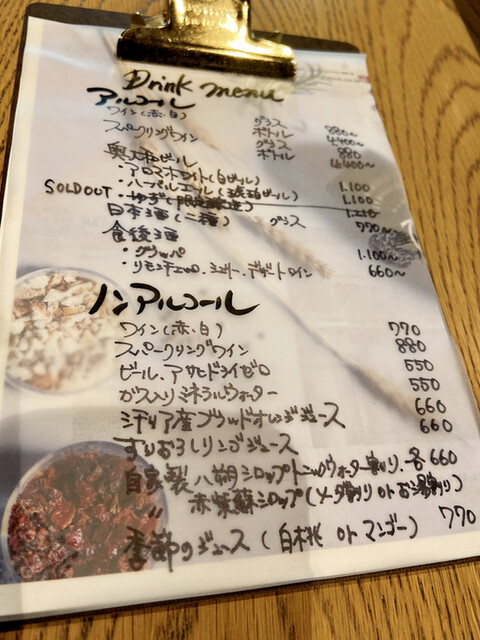 Drink menu
アルコール
ワイン(赤、白) グラス 880〜
ボトル 4,400〜
スパークリングワイン グラス 880
ボトル 4,400〜
奥大和ビール
・アロマホワイト(白ビール) 1,100
・ハーバルエール(琥珀ビール) 1,100
SOLD OUT ・ゆず(限定醸造) 1,210
日本酒(二種) グラス 770〜
食後酒
・グラッパ 1,100〜
・リモンチェッロ、シェリー、デザートワイン 660〜
ノンアルコール
ワイン(赤、白) 770
スパークリングワイン 880
ビール、アサヒドライゼロ 550
ガス入りミネラルウォーター 550
シチリア産ブラッドオレンジジュース 660
すりおろしリンゴジュース 660
自家製 八朔シロップ トニックウォーター割り、各660
〃 赤紫蘇シロップ(ソーダ割り or お湯割り)
季節のジュース(白桃 or マンゴー) 770